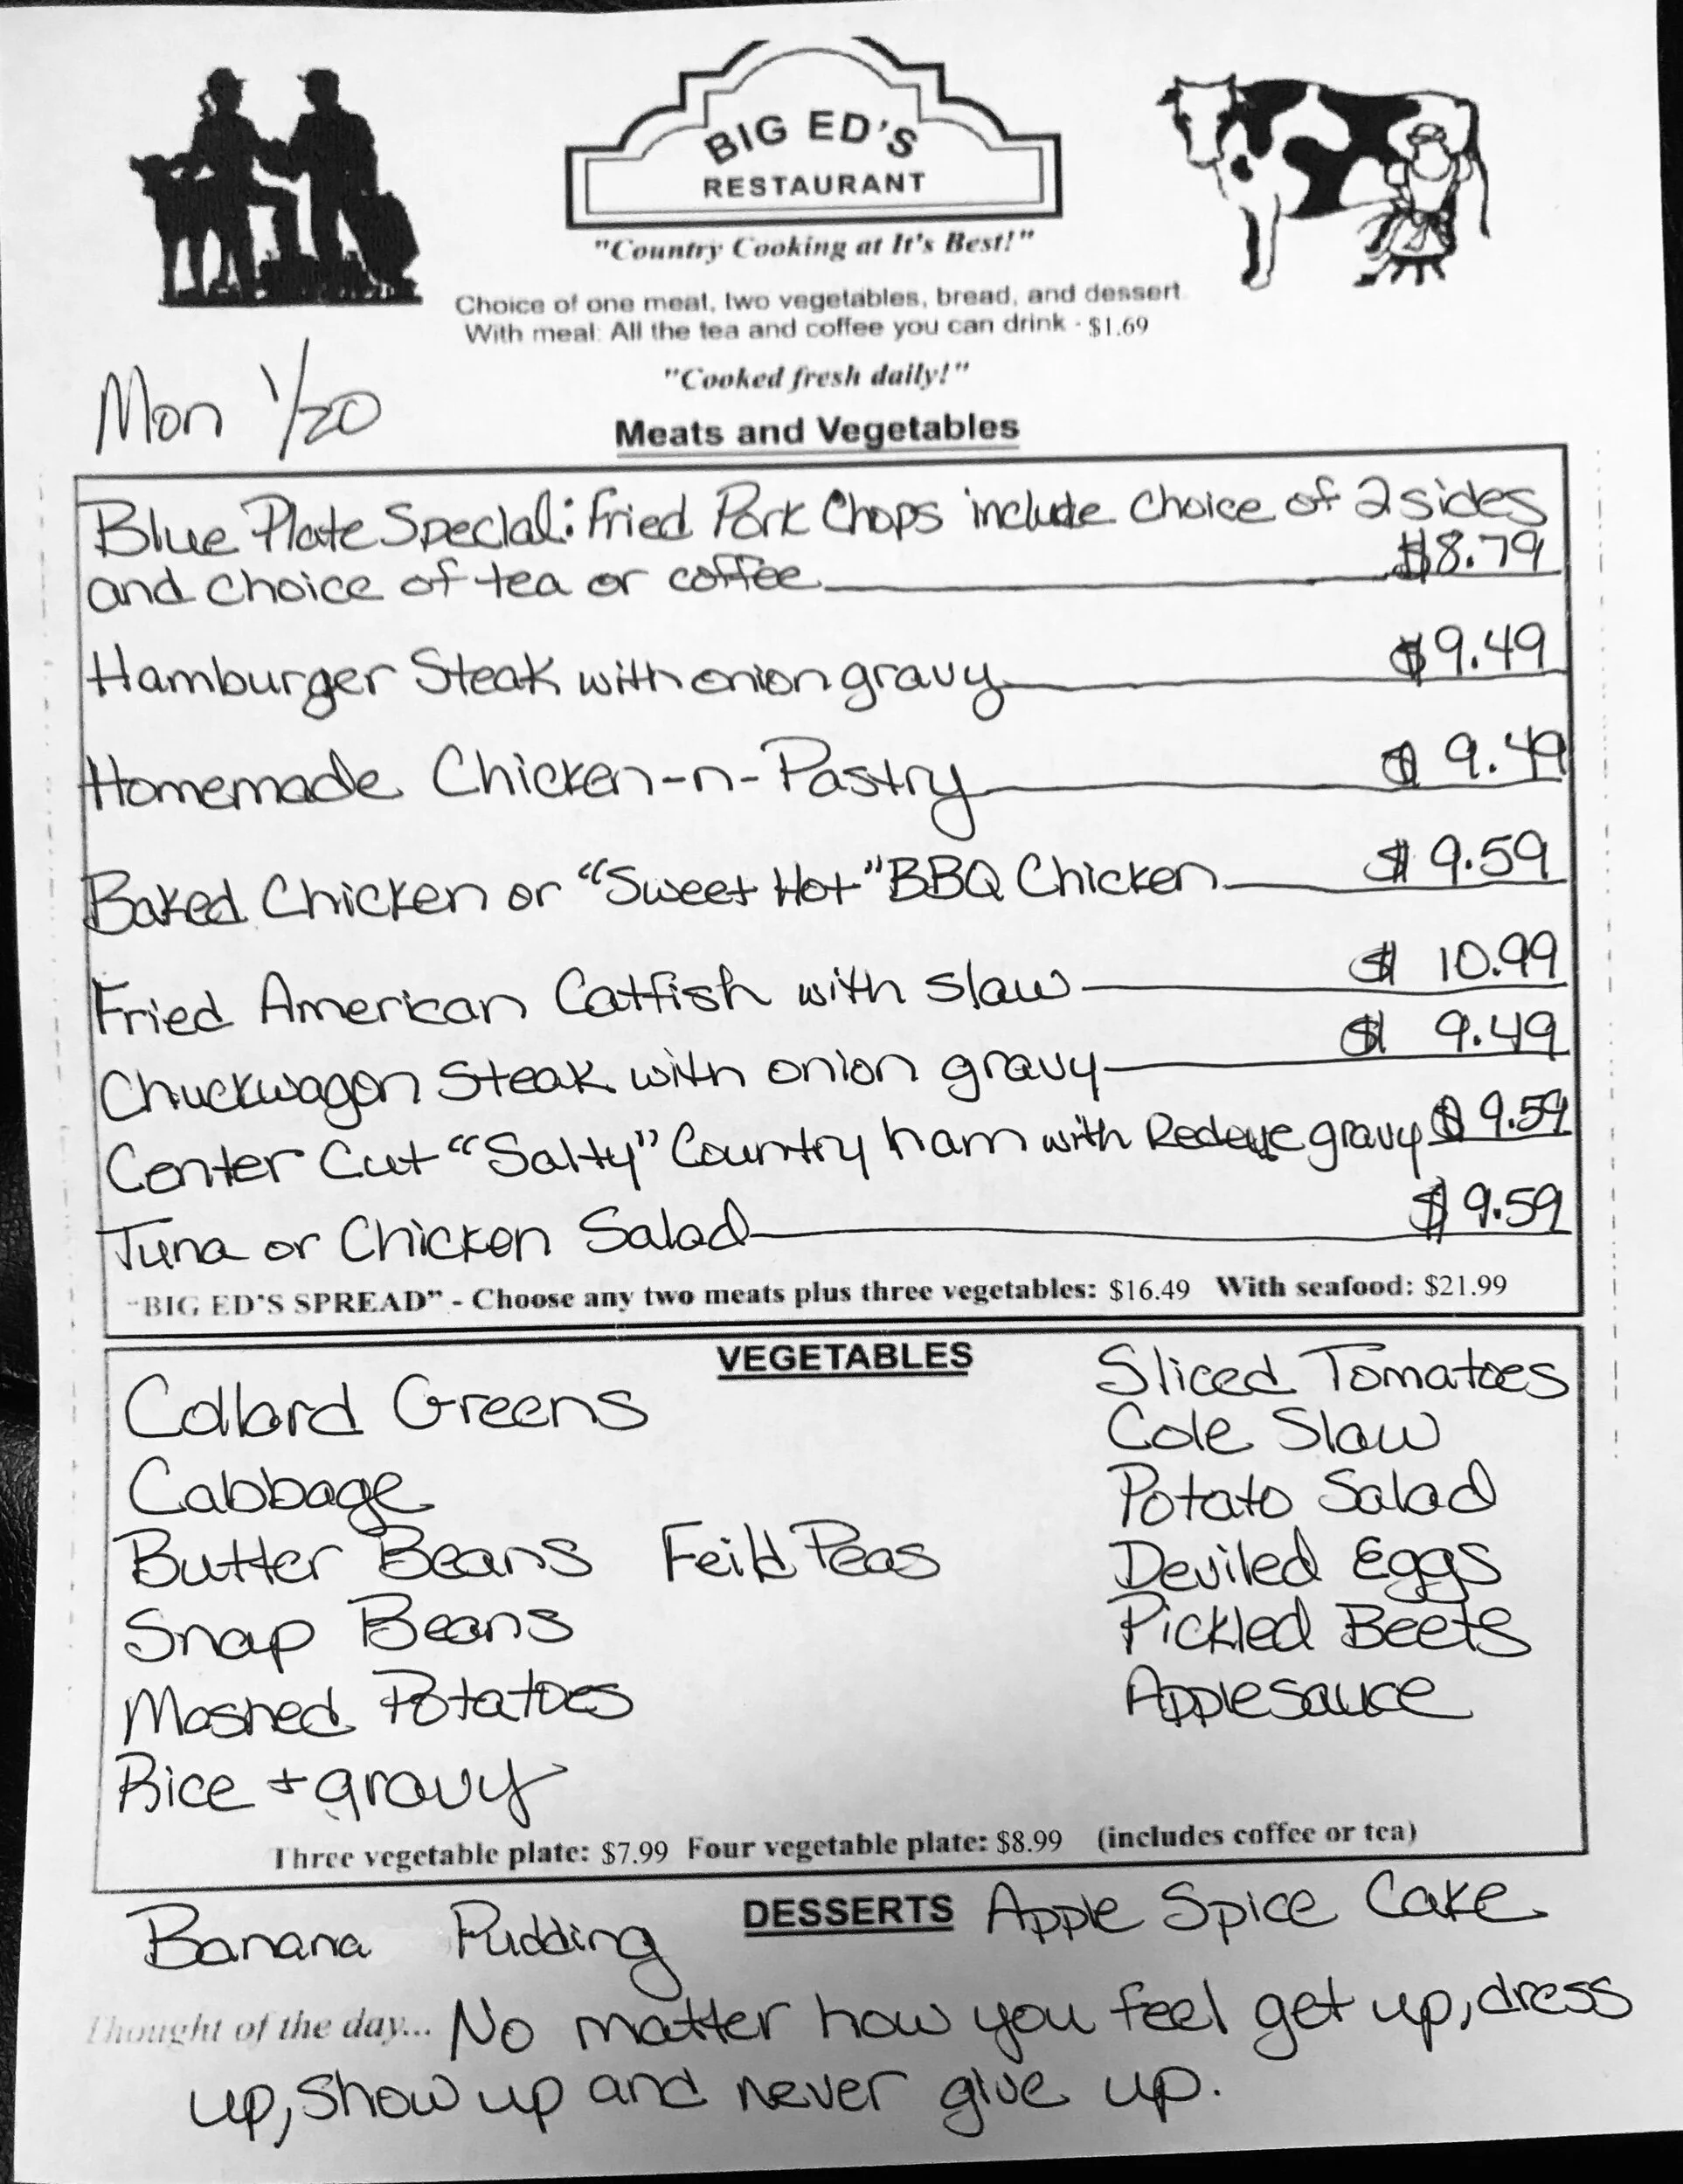 BIG ED'S
RESTAURANT
"Country Cooking at It's Best!"
Choice of one meat, two vegetables, bread, and dessert.
With meal: All the tea and coffee you can drink - $1.69
"Cooked fresh daily!"
Mon 1/20
Meats and Vegetables
Blue Plate Special: Fried Pork Chops include choice of 2 sides
and choice of tea or coffee $8.79
Hamburger Steak with onion gravy $9.49
Homemade Chicken-n-Pastry $9.49
Baked Chicken or "Sweet Hot" BBQ Chicken $9.59
Fried American Catfish with slaw $10.99
Chuckwagon Steak with onion gravy $9.49
Center Cut "Salty" Country ham with Redeye gravy $9.59
Tuna or Chicken Salad $9.59
"BIG ED'S SPREAD" - Choose any two meats plus three vegetables: $16.49 With seafood: $21.99
VEGETABLES
Collard Greens
Cabbage
Butter Beans Feild Peas
Snap Beans
Mashed Potatoes
Rice + gravy
Sliced Tomatoes
Cole Slaw
Potato Salad
Deviled Eggs
Pickled Beets
Applesauce
Three vegetable plate: $7.99 Four vegetable plate: $8.99 (includes coffee or tea)
DESSERTS
Banana Pudding
Apple Spice Cake
Thought of the day... No matter how you feel get up, dress
up, show up and never give up.